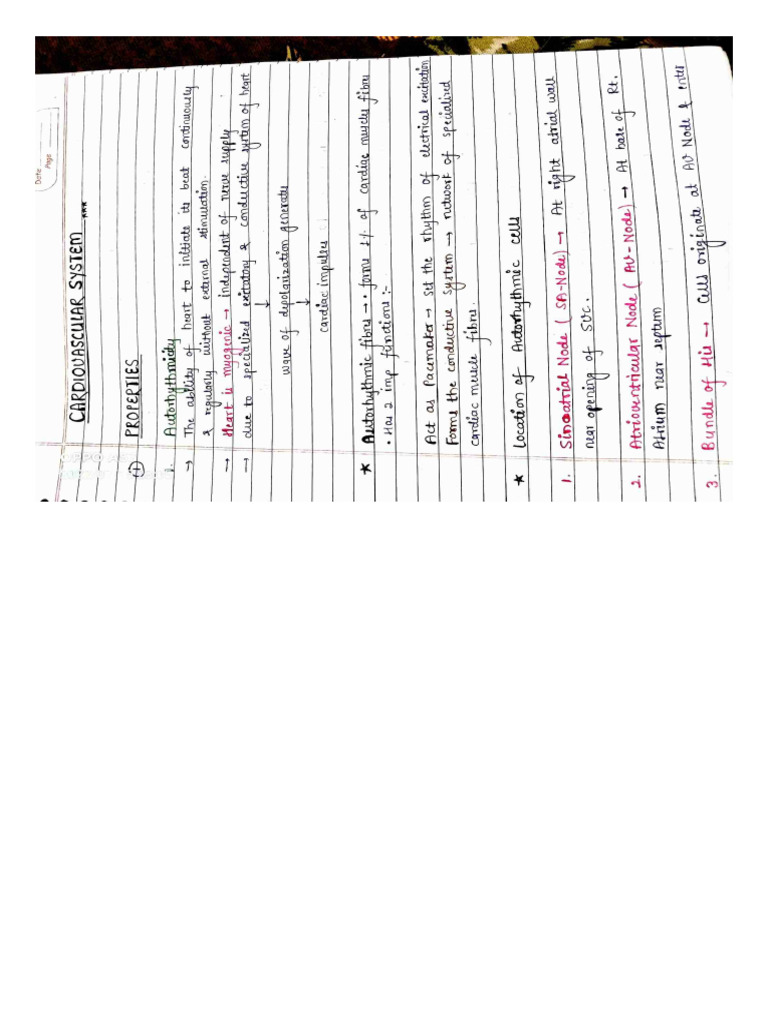 Date
Page
CARDIOVASCULAR SYSTEM ***
PROPERTIES
①
1. Autorhythmicity
→ The ability of heart to initiate its beat continuously
& regularly without external stimulation.
→ Heart is myogenic → independent of nerve supply
→ due to specialized excitatory & conductive system of heart
↓
wave of depolarization generate
↓
cardiac impulses
* Autorhythmic fibre → • forms 1% of cardiac muscle fibre
• Has 2 imp functions :-
Act as Pacemaker → set the rhythm of electrical excitation
Forms the conductive system → network of specialized
cardiac muscle fibre.
* Location of Autorhythmic cells
1. Sinoatrial Node ( SA-Node) → At right atrial wall
near opening of SVC.
2. Atrioventricular Node ( AV-Node) → At base of Rt.
Atrium near septum
3. Bundle of His → cells originate at AV Node & enter